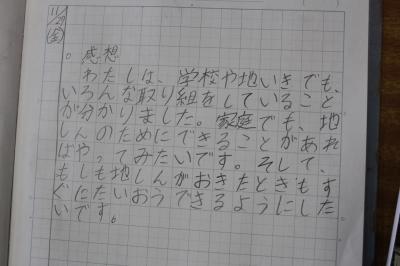 11/29
(金)
○感想
わたしは、学校や地いきでも、
いろんな取り組をしていること
が分かりました。家庭でも、地
しんのためにできることがあれ
ばやってみたいです。そして、
もしも地しんがおきたときもす
ぐにたいおうできるようにした
いです。